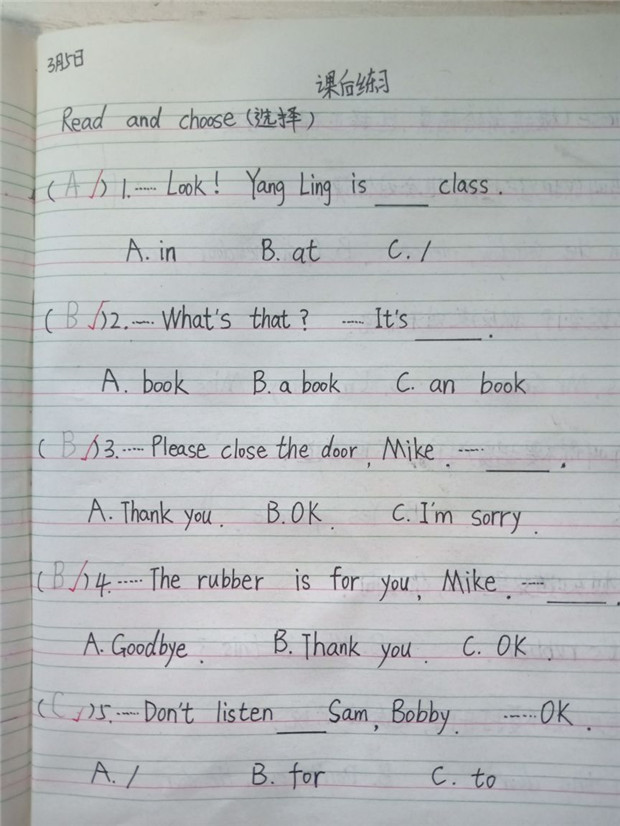 3月5日
课后练习
Read and choose (选择)
( A √) 1. ---- Look! Yang Ling is ____ class.
A. in B. at C. /
( B √) 2. ---- What's that? ---- It's ____.
A. book B. a book C. an book
( B √) 3. ---- Please close the door, Mike. ---- ____.
A. Thank you. B. OK. C. I'm sorry.
( B √) 4. ---- The rubber is for you, Mike. ---- ____.
A. Goodbye. B. Thank you. C. OK.
( C √) 5. ---- Don't listen ____ Sam, Bobby. ---- OK.
A. / B. for C. to